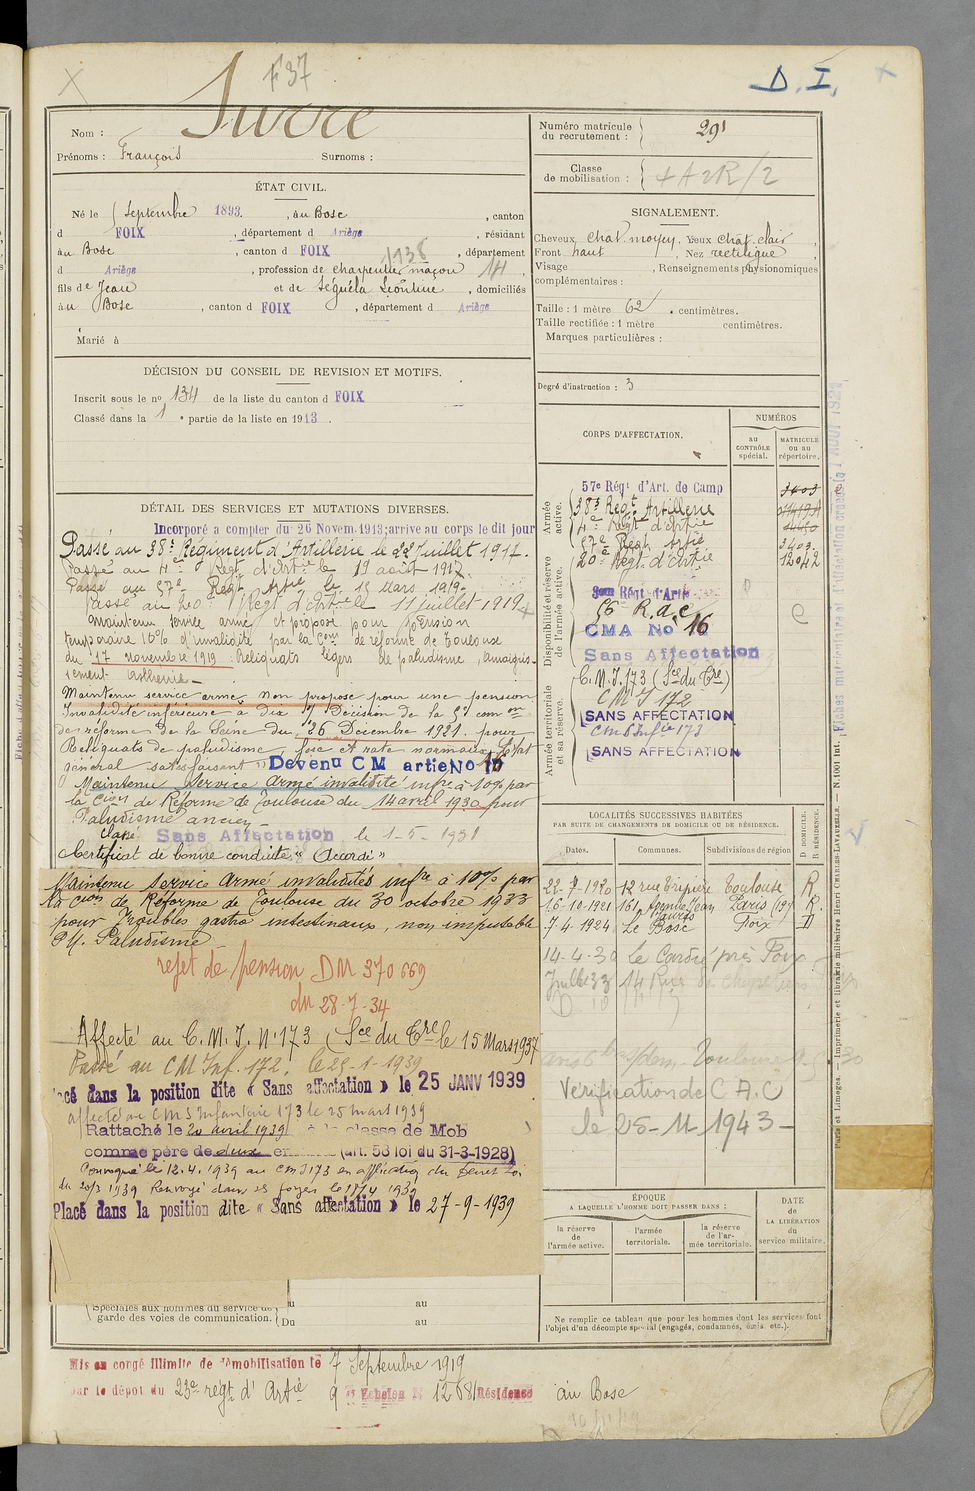 F 37
D. I.
Nom : Surre
Prénoms : François Surnoms :
Numéro matricule du recrutement : 291
Classe de mobilisation :
ÉTAT CIVIL.
Né le Septembre 1893, au Bosc, canton
d FOIX, département d Ariège, résidant
au Bosc, canton d FOIX, département
d Ariège, profession de charpentier maçon
fils de Jean et de Séguéla Léontine, domiciliés
au Bosc, canton d FOIX, département d Ariège
Marié à
SIGNALEMENT.
Cheveux chat. moyen. Yeux chat. clair,
Front haut, Nez rectiligne,
Visage, Renseignements physionomiques
complémentaires :
Taille : 1 mètre 62 centimètres.
Taille rectifiée : 1 mètre centimètres.
Marques particulières :
Degré d'instruction : 3
DÉCISION DU CONSEIL DE REVISION ET MOTIFS.
Inscrit sous le no 134 de la liste du canton d FOIX
Classé dans la 1e partie de la liste en 1913.
DÉTAIL DES SERVICES ET MUTATIONS DIVERSES.
Incorporé a compter du 26 Novem. 1913; arrive au corps le dit jour
Passé au 38e Régiment d'Artillerie le 22 Juillet 1917.
Passé au 4e Régt d'Artie le 19 août 1917.
Passé au 57e Regt Artie le 15 Mars 1919.
Passé au 20e Régt d'Artie le 11 juillet 1919
Maintenu service armé et proposé pour pension
temporaire 10% d'invalidité par la Com de réforme de Toulouse
du 17 novembre 1919. Reliquats légers de paludisme, amaigris-
sement asthénie -
Maintenu service armé. Non proposé pour une pension
Invalidité inférieure à dix % Décision de la 5e comon
de réforme de la Seine du 26 Décembre 1921. pour
Reliquats de paludisme, foie et rate normaux, Etat
général satisfaisant" Devenu CM artie No 16
Maintenu Service Armé invalidité infre à 10% par
la Cion de Réforme de Toulouse du 14 avril 1930 pour
Paludisme ancien -
Classé Sans Affectation le 1-5-1931
Certificat de bonne conduite "Accordé"
Maintenu Service Armé invalidités infre à 10% par
la Cion de Réforme de Toulouse du 30 octobre 1933
pour Troubles gastro intestinaux, non imputable
P.4. Paludisme
rejet de pension DM 370 669
du 28-7-34
Affecté au C.M.I. No 173 (Sce du Tre) le 15 Mars 1937
Passé au CM Inf. 172. le 25-1-1939
Placé dans la position dite « Sans affectation » le 25 JANV 1939
affecté au CMS Infanterie 173 le 25 mars 1939
Rattaché le 20 avril 1939 à la classe de Mob
comme père de deux enfants (art. 58 loi du 31-3-1928)
Convoqué le 12.4.1939 au CMI 173 en application du
du 20/3 1939 Renvoyé dans ses foyers le 1939
Placé dans la position dite « Sans affectation » le 27-9-1939
Spéciales aux hommes du service de
garde des voies de communication.
Du au
Du au
CORPS D'AFFECTATION.
NUMÉROS
AU CONTRÔLE spécial.
MATRICULE ou au répertoire.
Armée active.
57e Régt d'Art. de Camp
38e Régt Artillerie
4e Régt d'Artie
57e Régt Artie 3403
20e Régt d'Artie 12042
Disponibilité et réserve de l'armée active.
Régt d'Artie
56 R.a.c
CMA No 16
Sans Affectation
Armée territoriale et sa réserve.
C.M.I. 173 (Sce du Tre)
CMI 172
SANS AFFECTATION
CMS Infie 173
SANS AFFECTATION
LOCALITÉS SUCCESSIVES HABITÉES
PAR SUITE DE CHANGEMENTS DE DOMICILE OU DE RÉSIDENCE.
Dates. Communes. Subdivisions de région
D DOMICILE. R RÉSIDENCE.
22-7-1920 12 rue Tripière Toulouse R
16-10-1921 161, Avenue Jean Jaurès Paris (19) R
7-4-1924 Le Bosc Foix D
14-4-30 le Cardié près Foix
Juillet 33 14 Rue
Vérification de C A C
le 25-11-1943 -
ÉPOQUE
A LAQUELLE L'HOMME DOIT PASSER DANS :
la réserve de l'armée active.
l'armée territoriale.
la réserve de l'armée territoriale.
DATE de LA LIBÉRATION du service militaire.
Ne remplir ce tableau que pour les hommes dont les services font
l'objet d'un décompte spécial (engagés, condamnés, omis, etc.).
Mis en congé illimité de démobilisation le 7 Septembre 1919
par le dépôt du 23e régt d'Artie 9e Echelon No Résidence au Bosc
Paris et Limoges. — Imprimerie et librairie militaires Henri CHARLES-LAVAUZELLE. — N. 1001 Int.